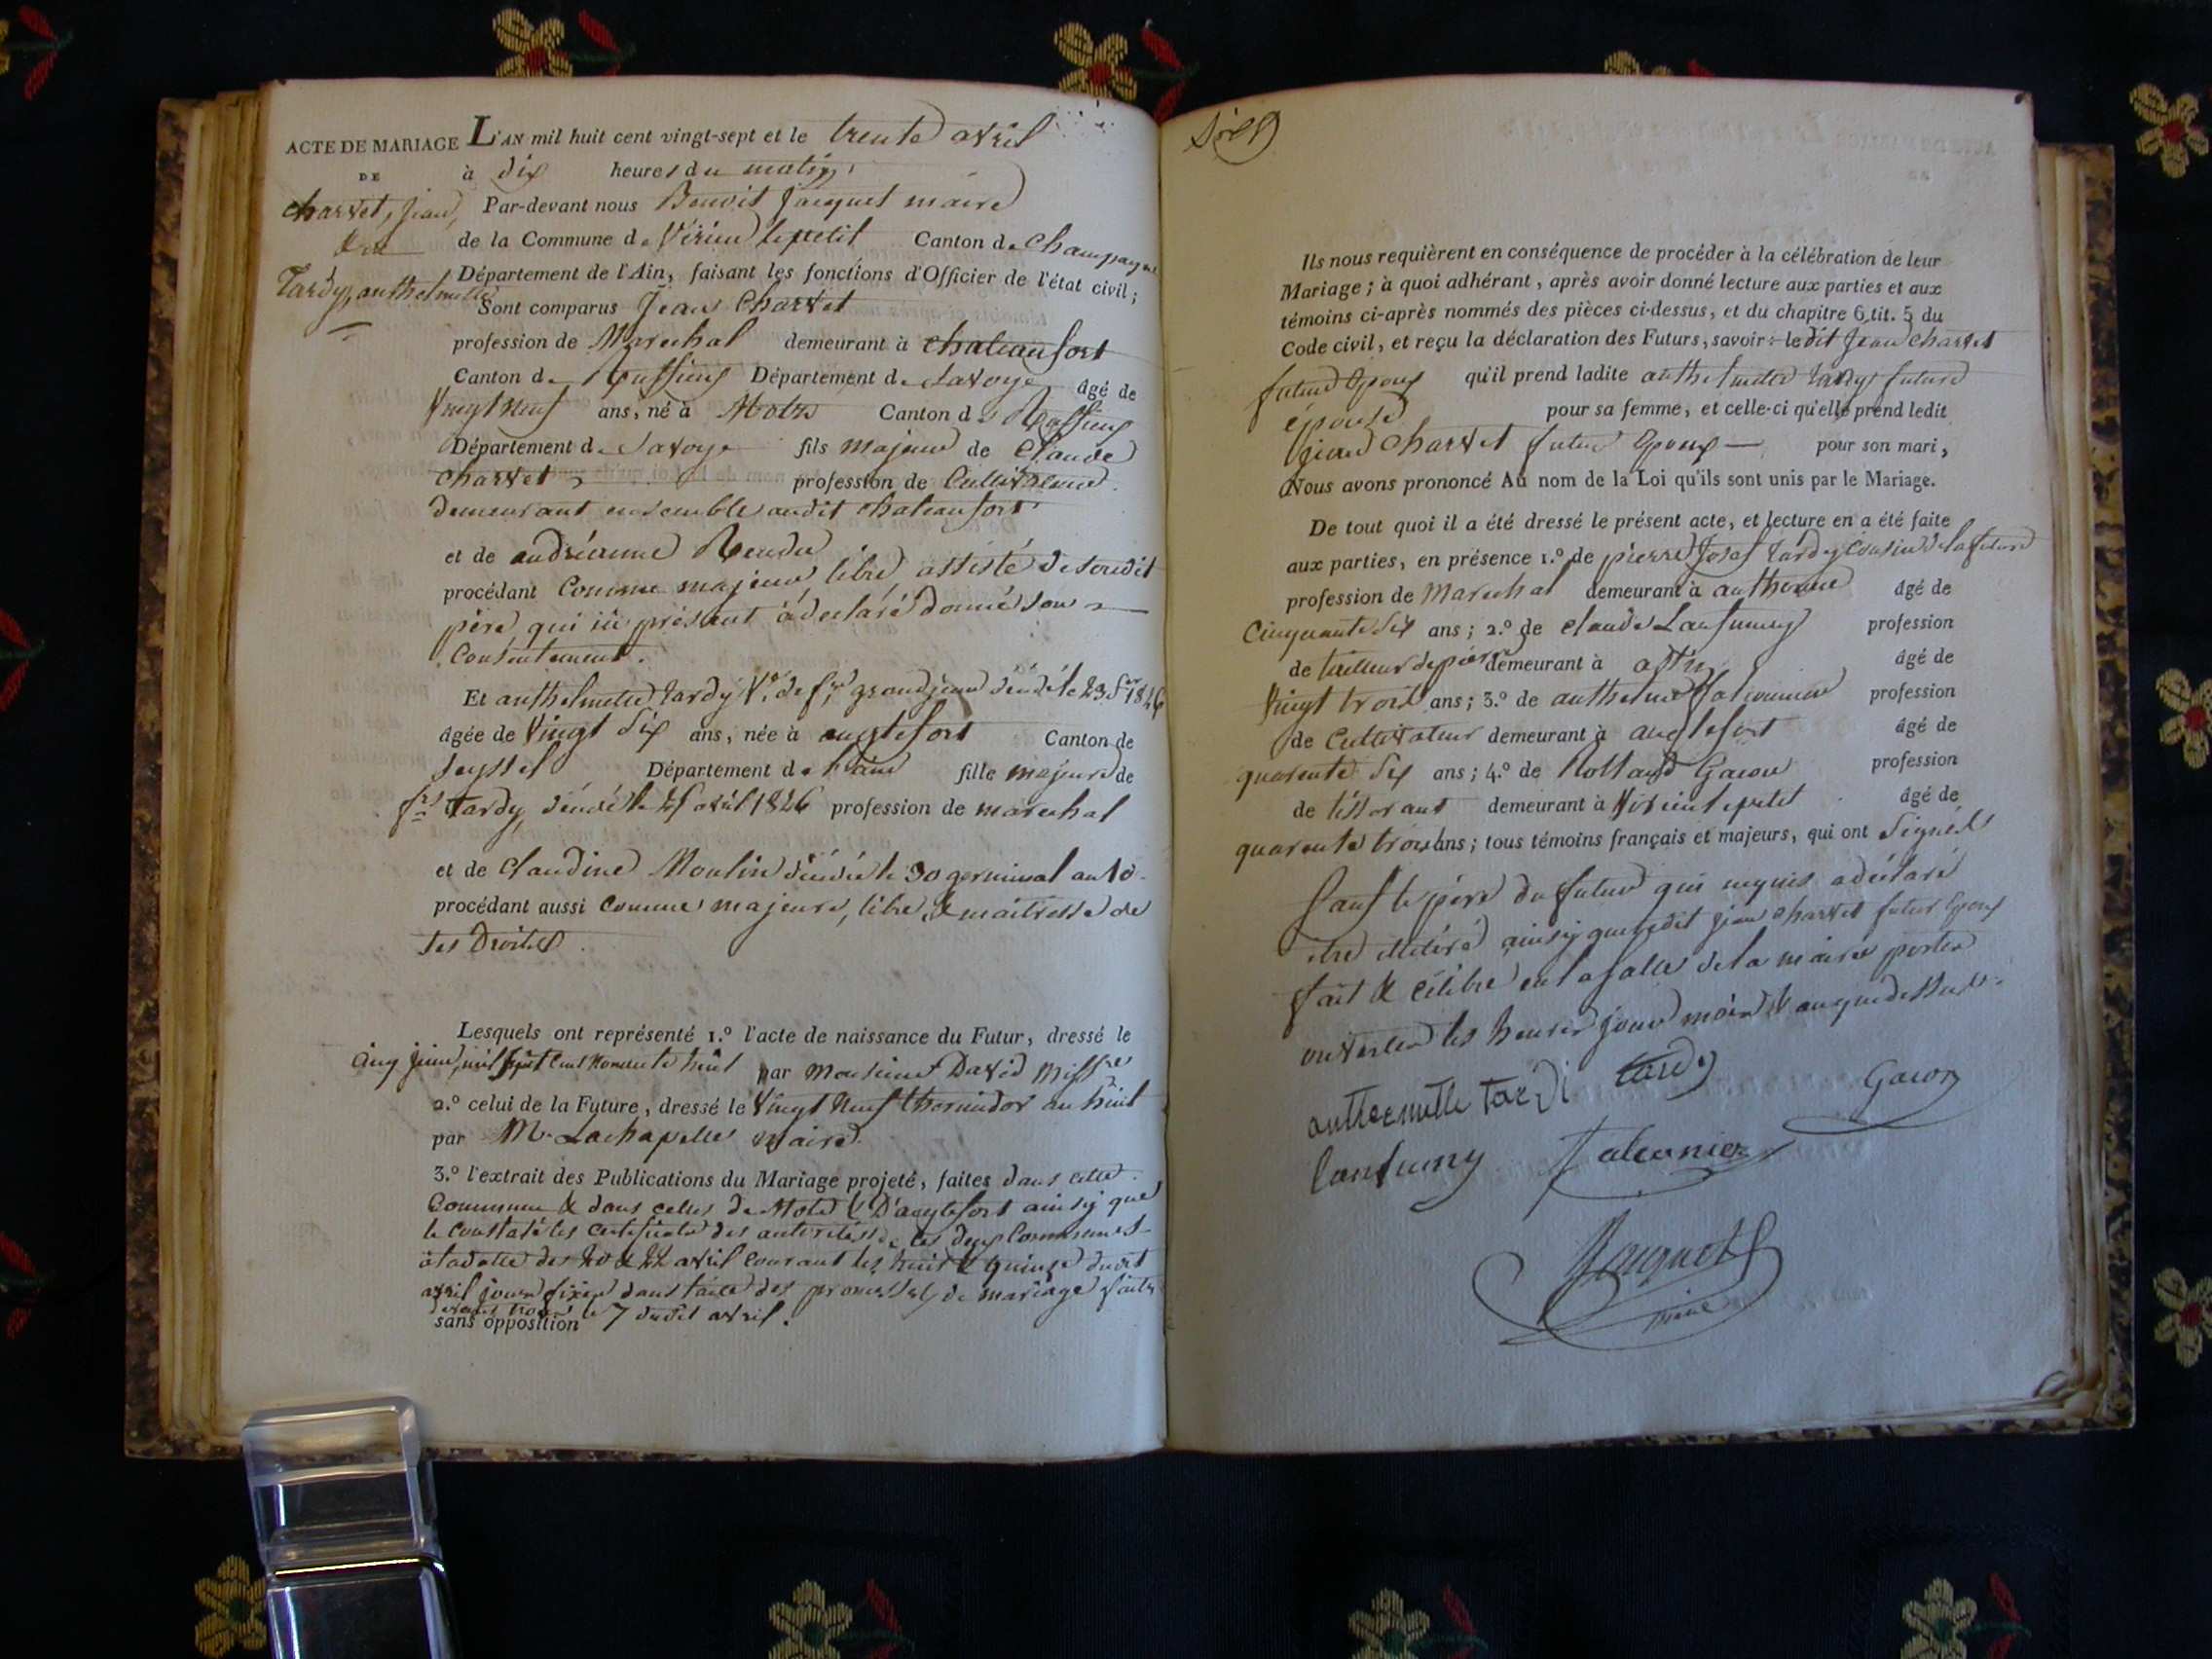 ACTE DE MARIAGE
DE
charvet, jean,
&
Tardy, anthelmette
L'AN mil huit cent vingt-sept et le trente avril
à dix heures du matin,
Par-devant nous Benoit Jacquet maire
de la Commune de Virieu lepetit Canton de Champagne
Département de l'Ain, faisant les fonctions d'Officier de l'état civil;
Sont comparus Jean Charvet
profession de Marechal demeurant à chateaufort
Canton de Ruffieux Département de Savoye âgé de
Vingt neuf ans, né à Motz Canton de Ruffieux
Département de Savoye fils majeur de Claude
Charvet profession de Cultivateur
demeurant ensemble audit chateaufort
et de andréanne
procédant Comme majeur libre assisté de sondit
père qui ici présent à déclaré donné son
Consentement.
Et anthelmette tardy Ve. de fs. grandjean décédé le 23
âgée de Vingt Six ans, née à anglefort Canton de
Seyssel Département de l'ain fille majeure de
fs. tardy décédé le avril 1826 profession de marechal
et de Claudine Moulin décédée le 30 germinal an 10
procédant aussi Comme majeure, libre & maitresse de
ses Droits.
Lesquels ont représenté 1.º l'acte de naissance du Futur, dressé le
Cinq juin, mil sept cent nonante huit par Monsieur David
2.º celui de la Future, dressé le Vingt Neuf thermidor an huit
par Mr. Lachapelle maire
3.º l'extrait des Publications du Mariage projeté, faites dans cette
Commune & dans celles de Motz & D'anglefort ainsi que
le Constate les Certificats des autorités de ces deux Communes
à la date des 20 & 22 avril Courant les huit & quinze dudit
avril jours fixés dans l'acte des promesses de mariage faites
devant nous le 7 dudit avril.
sans opposition
Ils nous requièrent en conséquence de procéder à la célébration de leur
Mariage; à quoi adhérant, après avoir donné lecture aux parties et aux
témoins ci-après nommés des pièces ci-dessus, et du chapitre 6 tit. 5 du
Code civil, et reçu la déclaration des Futurs, savoir: ledit Jean Charvet
futur Epoux qu'il prend ladite anthelmette tardy future
épouse pour sa femme, et celle-ci qu'elle prend ledit
jean Charvet futur Epoux pour son mari,
Nous avons prononcé Au nom de la Loi qu'ils sont unis par le Mariage.
De tout quoi il a été dressé le présent acte, et lecture en a été faite
aux parties, en présence 1.º de pierre Josef tardy Cousin de la future
profession de Marechal demeurant à âgé de
Cinquante Six ans; 2.º de Claude Lanfumey profession
de tailleur de pierre demeurant à âgé de
Vingt trois ans; 3.º de anthelme falconnier profession
de Cultivateur demeurant à anglefort âgé de
quarente Six ans; 4.º de Rolland Gacon profession
de tisserant demeurant à Virieu lepetit âgé de
quarente trois ans; tous témoins français et majeurs, qui ont Signés
Sauf le père du futur qui requis a déclaré
être illitéré ainsy que ledit jean charvet futur Epoux
fait & célébré en la salle de la mairie portes
ouvertes les heures jour mois & an que dessus.
anthelmette tardi
tardy
Gacon
lanfumey
falconier
Jacquet
maire